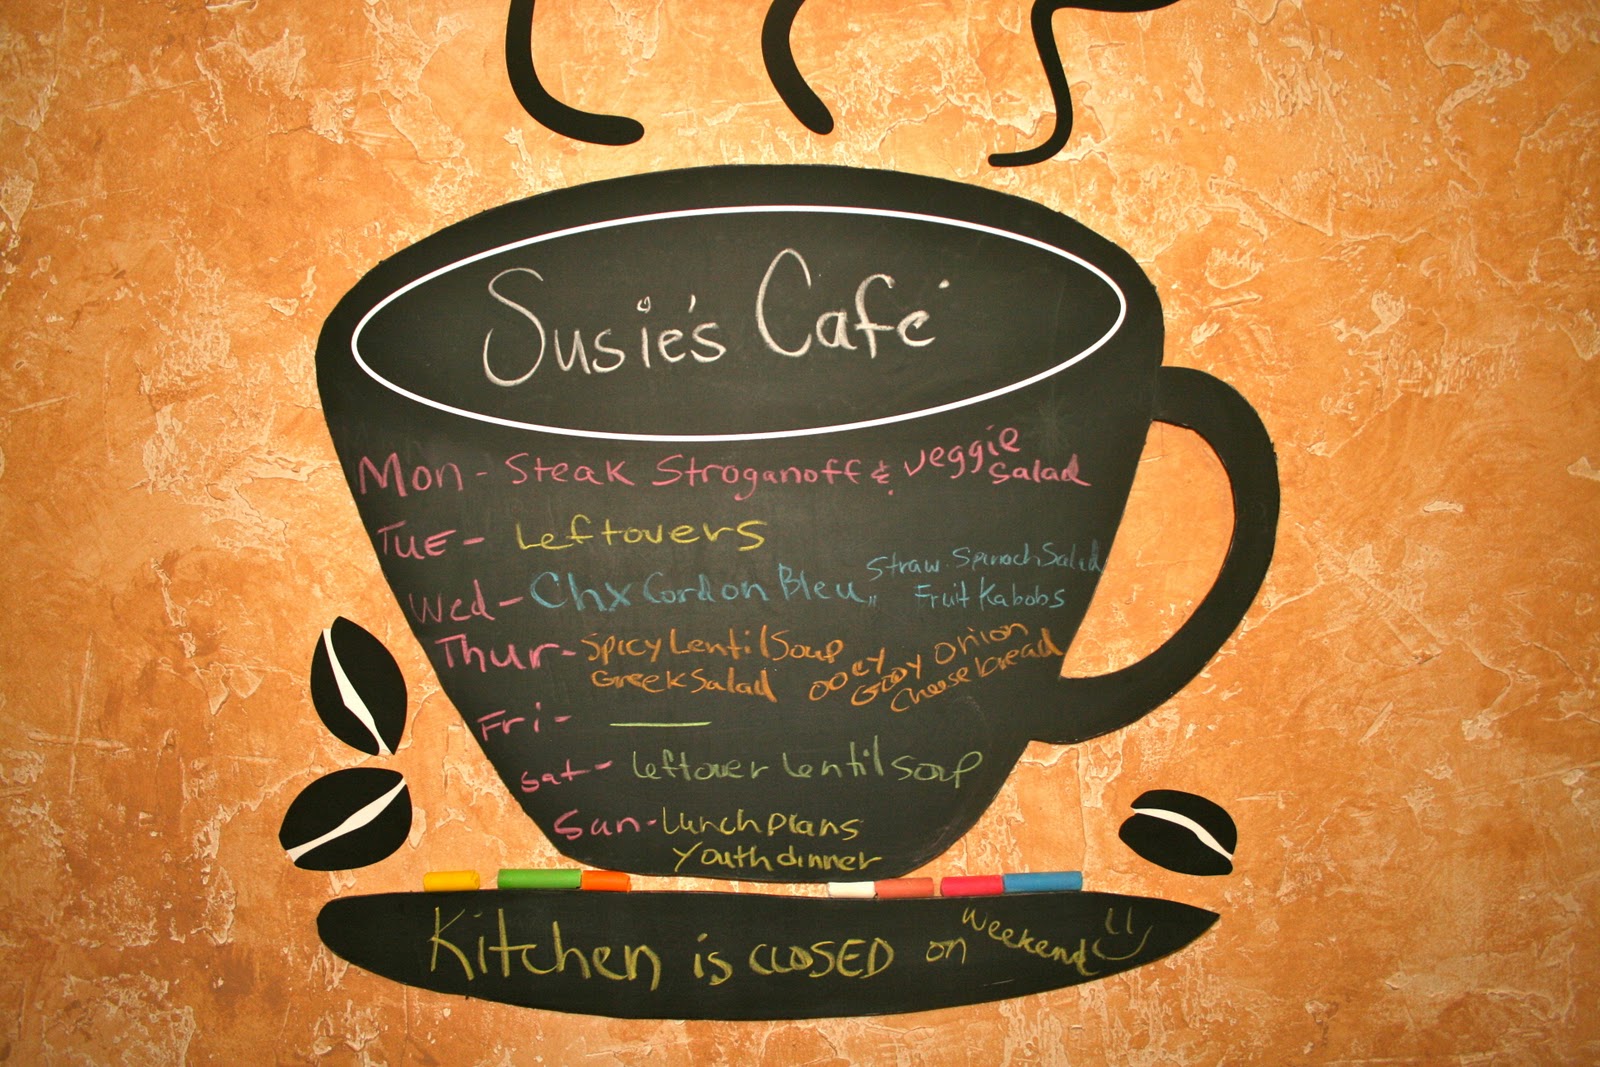 Susie's Café
Mon - Steak Stroganoff & veggie
Salad
Tue - Leftovers
Wed - Chx Cordon Bleu,, Straw. Spinach Salad
Fruit Kabobs
Thur - Spicy Lentil Soup
Greek Salad
ooey
Gooy onion
Cheese bread
Fri - ———
Sat - Leftover Lentil Soup
Sun - Lunch plans
Youth dinner
Kitchen is CLOSED on Weekend